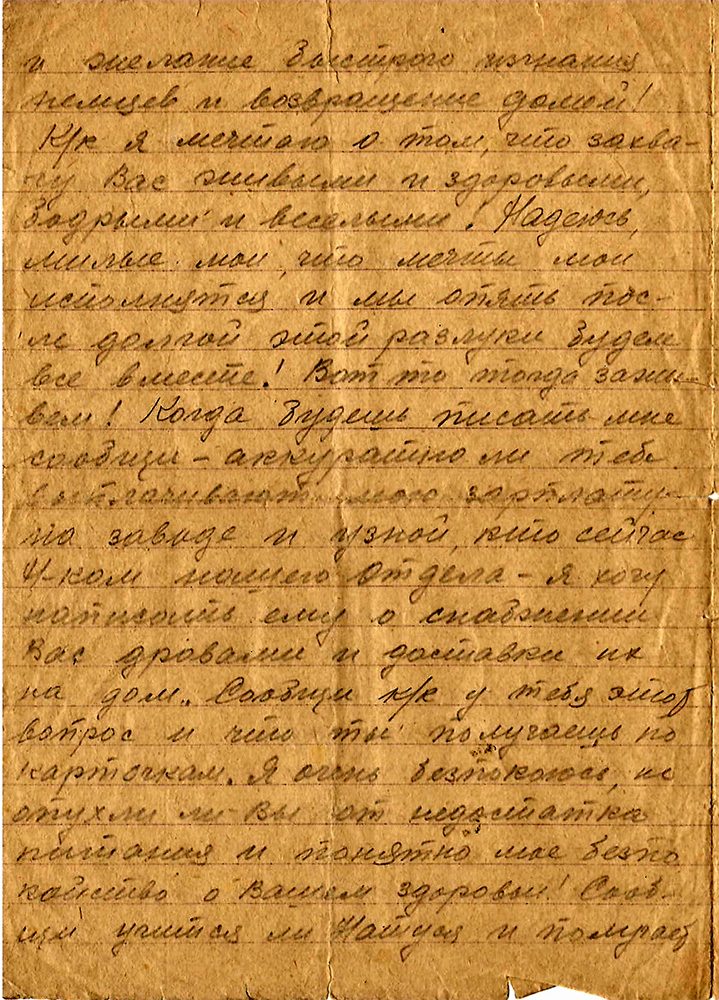 и желание быстрого изгнания
немцев и возвращение домой!
К/к я мечтаю о том, что захва-
чу Вас живыми и здоровыми,
бодрыми и веселыми! Надеюсь,
милые мои, что мечты мои
исполнятся и мы опять пос-
ле долгой этой разлуки будем
все вместе! Вот то тогда зажи-
вем! Когда будешь писать мне
сообщи - аккуратно ли тебе
выплачивают мою зарплату
на заводе и узнай, кто сейчас
Н-ком нашего отдела - я хочу
написать ему о снабжении
Вас дровами и доставки их
на дом. Сообщи к/к у тебя этот
вопрос и что ты получаешь по
карточкам. Я очень безпокоюсь, не
опухли ли Вы от недостатка
питания и понятно мое безпо
койство о Вашем здоровьи! Сооб-
щи учится ли Натуся и получает